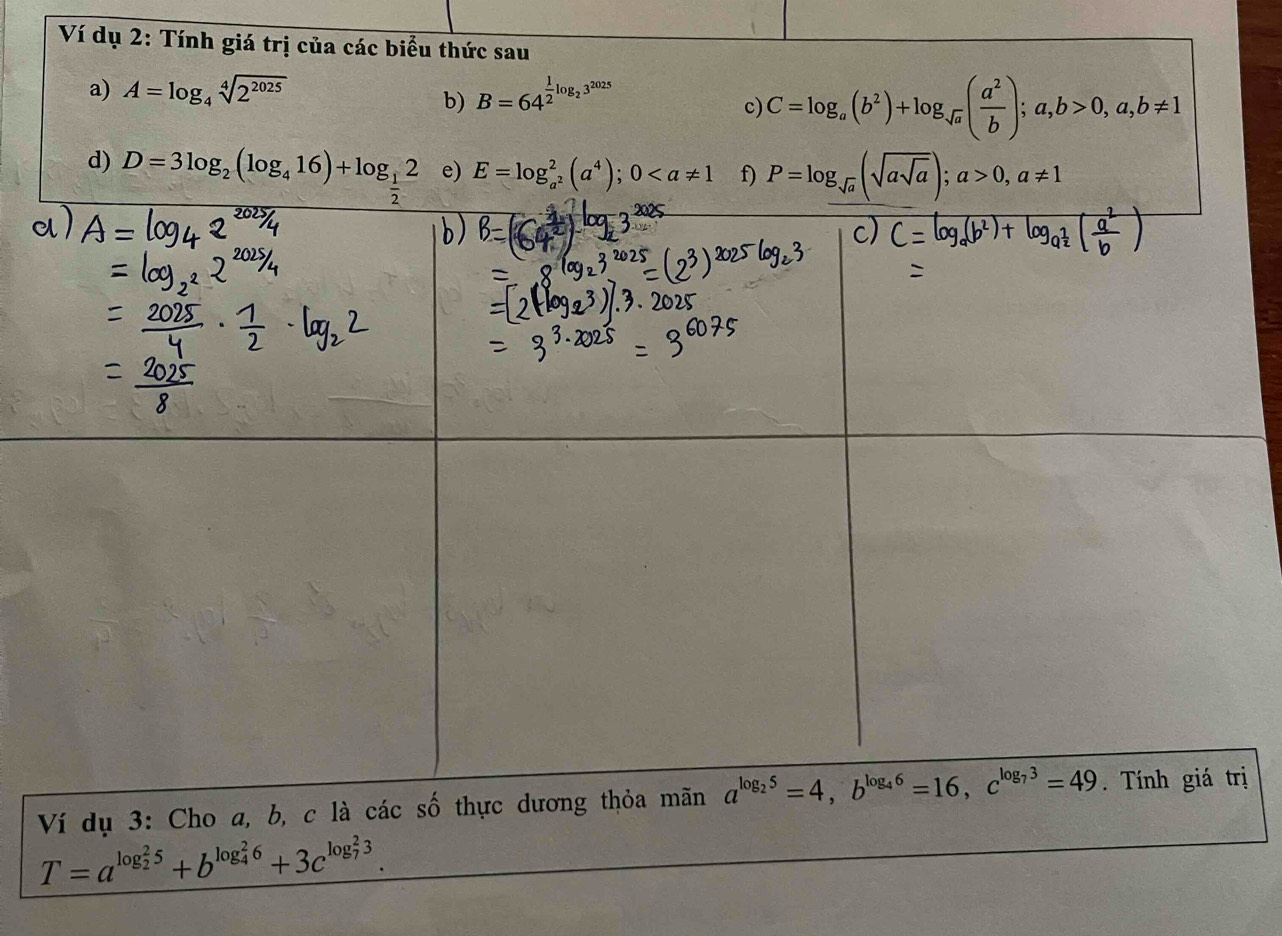 Ví dụ 2: Tính giá trị của các biểu thức sau
a) A = log₄ ∜(2^2025) b) B = 64^(½log₂ 3^2025) c) C = logₐ(b²) + log_√a(a²/b); a,b > 0, a,b ≠ 1
d) D = 3log₂(log₄ 16) + log_(1/2) 2 e) E = log²_(a²)(a⁴); 0 < a ≠ 1 f) P = log_√a(√(a√a)); a > 0, a ≠ 1
a) A = log₄ 2^(2025/4)
= log_(2²) 2^(2025/4)
= 2025/4 · 1/2 · log₂ 2
= 2025/8
b) B = (64^(1/2))^(log₂ 3^2025)
= 8^(log₂ 3^2025) = (2³)^(2025 log₂ 3)
= [2^(log₂ 3)].3.2025
= 3^(3.2025) = 3^6075
c) C = logₐ(b²) + log_(a^(1/2)) (a²/b)
=
Ví dụ 3: Cho a, b, c là các số thực dương thỏa mãn a^(log₂ 5) = 4, b^(log₄ 6) = 16, c^(log₇ 3) = 49. Tính giá trị
T = a^(log₂² 5) + b^(log₄² 6) + 3c^(log₇² 3).